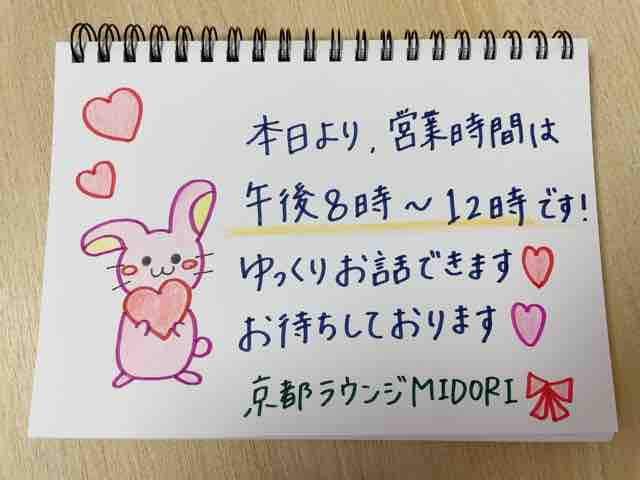 本日より, 営業時間は
午後8時～12時です!
ゆっくりお話できます
お待ちしております
京都ラウンジMIDORI